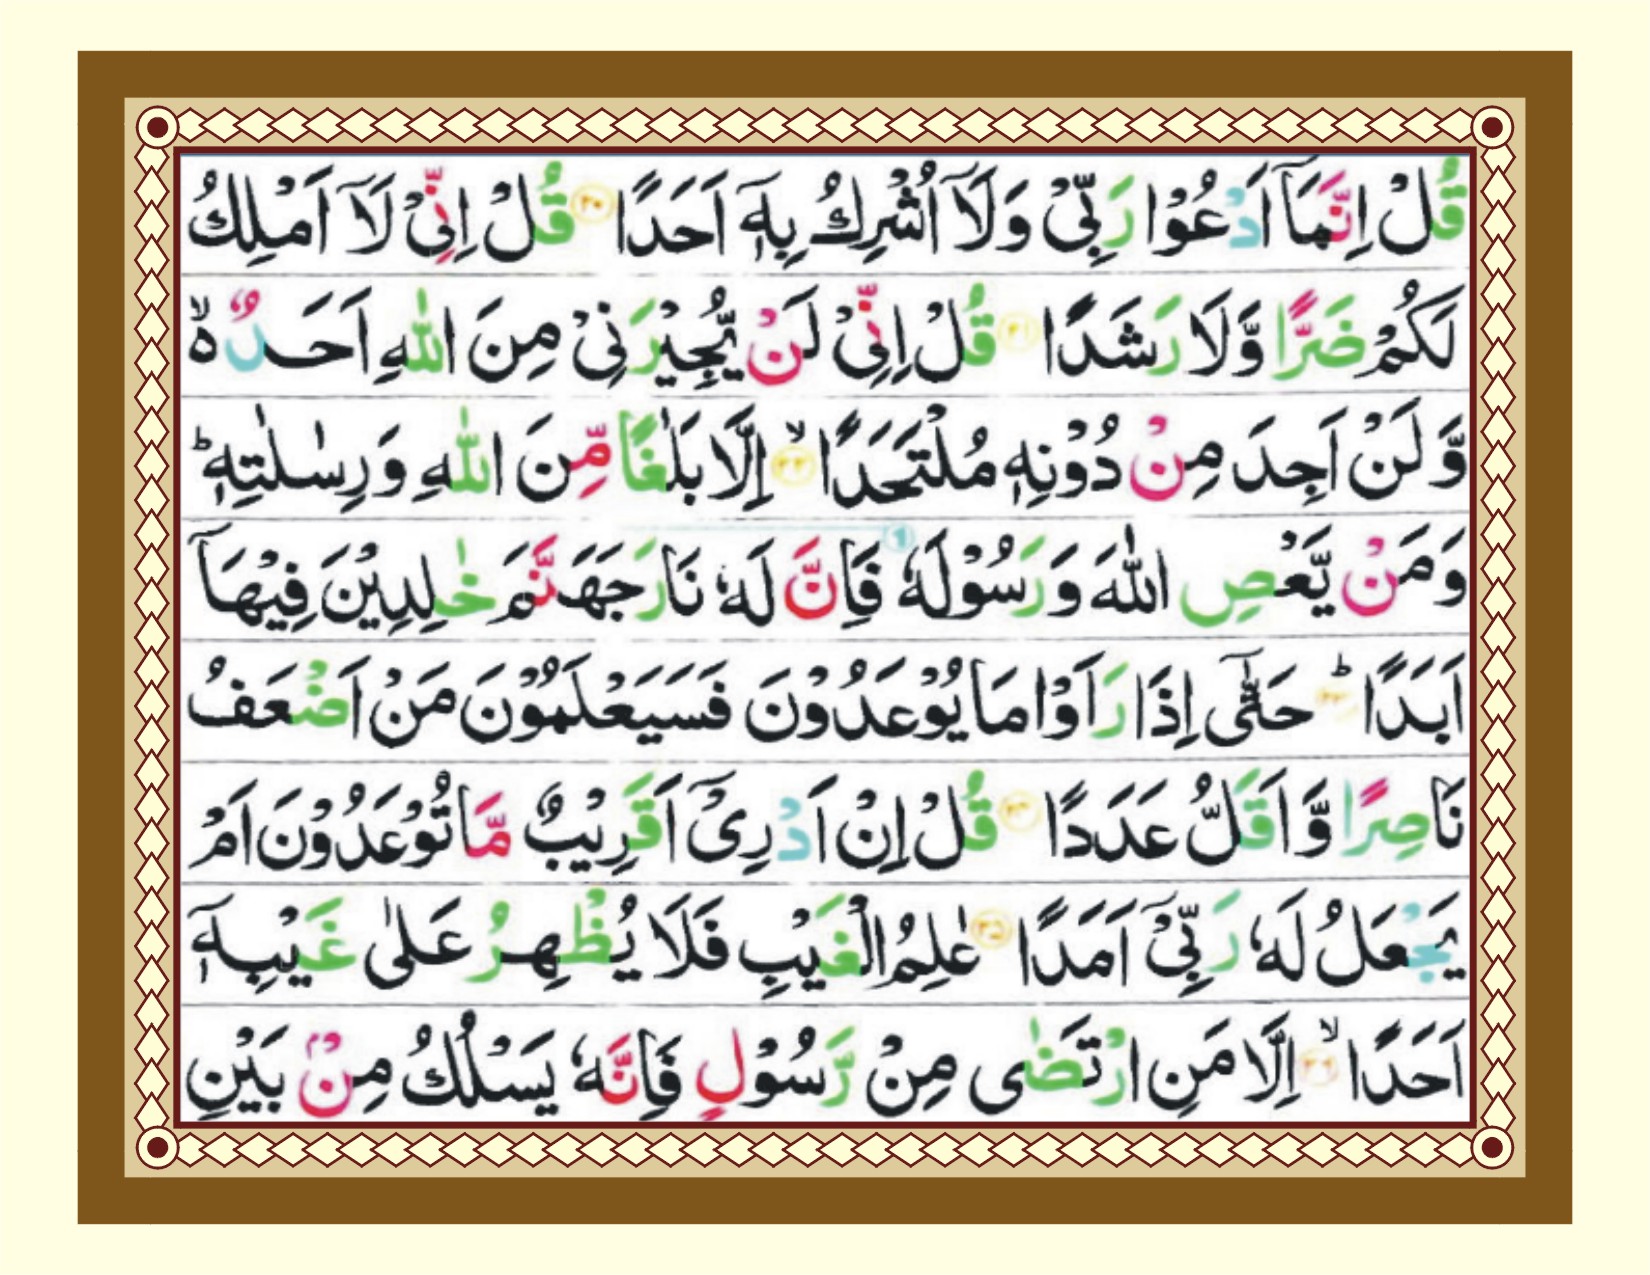 قُلْ اِنَّمَاۤ اَدْعُوْا رَبِّیْ وَلَاۤ اُشْرِكُ بِهٖۤ اَحَدًا ۲۰ قُلْ اِنِّیْ لَاۤ اَمْلِكُ
لَكُمْ ضَرًّا وَّلَا رَشَدًا ۲۱ قُلْ اِنِّیْ لَنْ یُّجِیْرَنِیْ مِنَ اللّٰهِ اَحَدٌ ۙ۬
وَّلَنْ اَجِدَ مِنْ دُوْنِهٖ مُلْتَحَدًا ۙ ۲۲ اِلَّا بَلٰغًا مِّنَ اللّٰهِ وَرِسٰلٰتِهٖ ؕ
وَمَنْ یَّعْصِ اللّٰهَ وَرَسُوْلَهٗ فَاِنَّ لَهٗ نَارَ جَهَنَّمَ خٰلِدِیْنَ فِیْهَاۤ
اَبَدًا ؕ ۲۳ حَتّٰۤی اِذَا رَاَوْا مَا یُوْعَدُوْنَ فَسَیَعْلَمُوْنَ مَنْ اَضْعَفُ
نَاصِرًا وَّاَقَلُّ عَدَدًا ۲۴ قُلْ اِنْ اَدْرِیْۤ اَقَرِیْبٌ مَّا تُوْعَدُوْنَ اَمْ
یَجْعَلُ لَهٗ رَبِّیْۤ اَمَدًا ۲۵ عٰلِمُ الْغَیْبِ فَلَا یُظْهِرُ عَلٰی غَیْبِهٖۤ
اَحَدًا ۙ ۲۶ اِلَّا مَنِ ارْتَضٰی مِنْ رَّسُوْلٍ فَاِنَّهٗ یَسْلُكُ مِنْۢ بَیْنِ